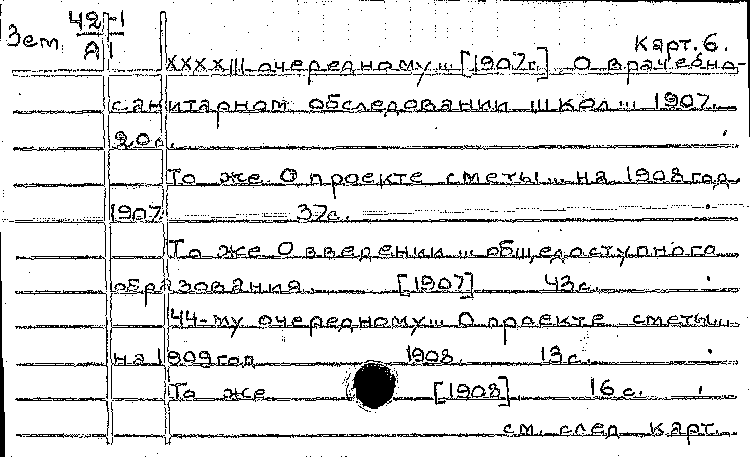 Зем. 42-1
А
Карт. 6.
XXXXIII очередному... [1907г.] О врачебно-
санитарном обследовании школ... 1907.
20с.
То же О проекте сметы... на 1908 год.
1907 37с.
То же О введении... общедоступного
образования. [1907] 43с.
44-му очередному... О проекте сметы...
на 1909 год 1908. 13с.
То же [1908] 16с.
см. след карт.